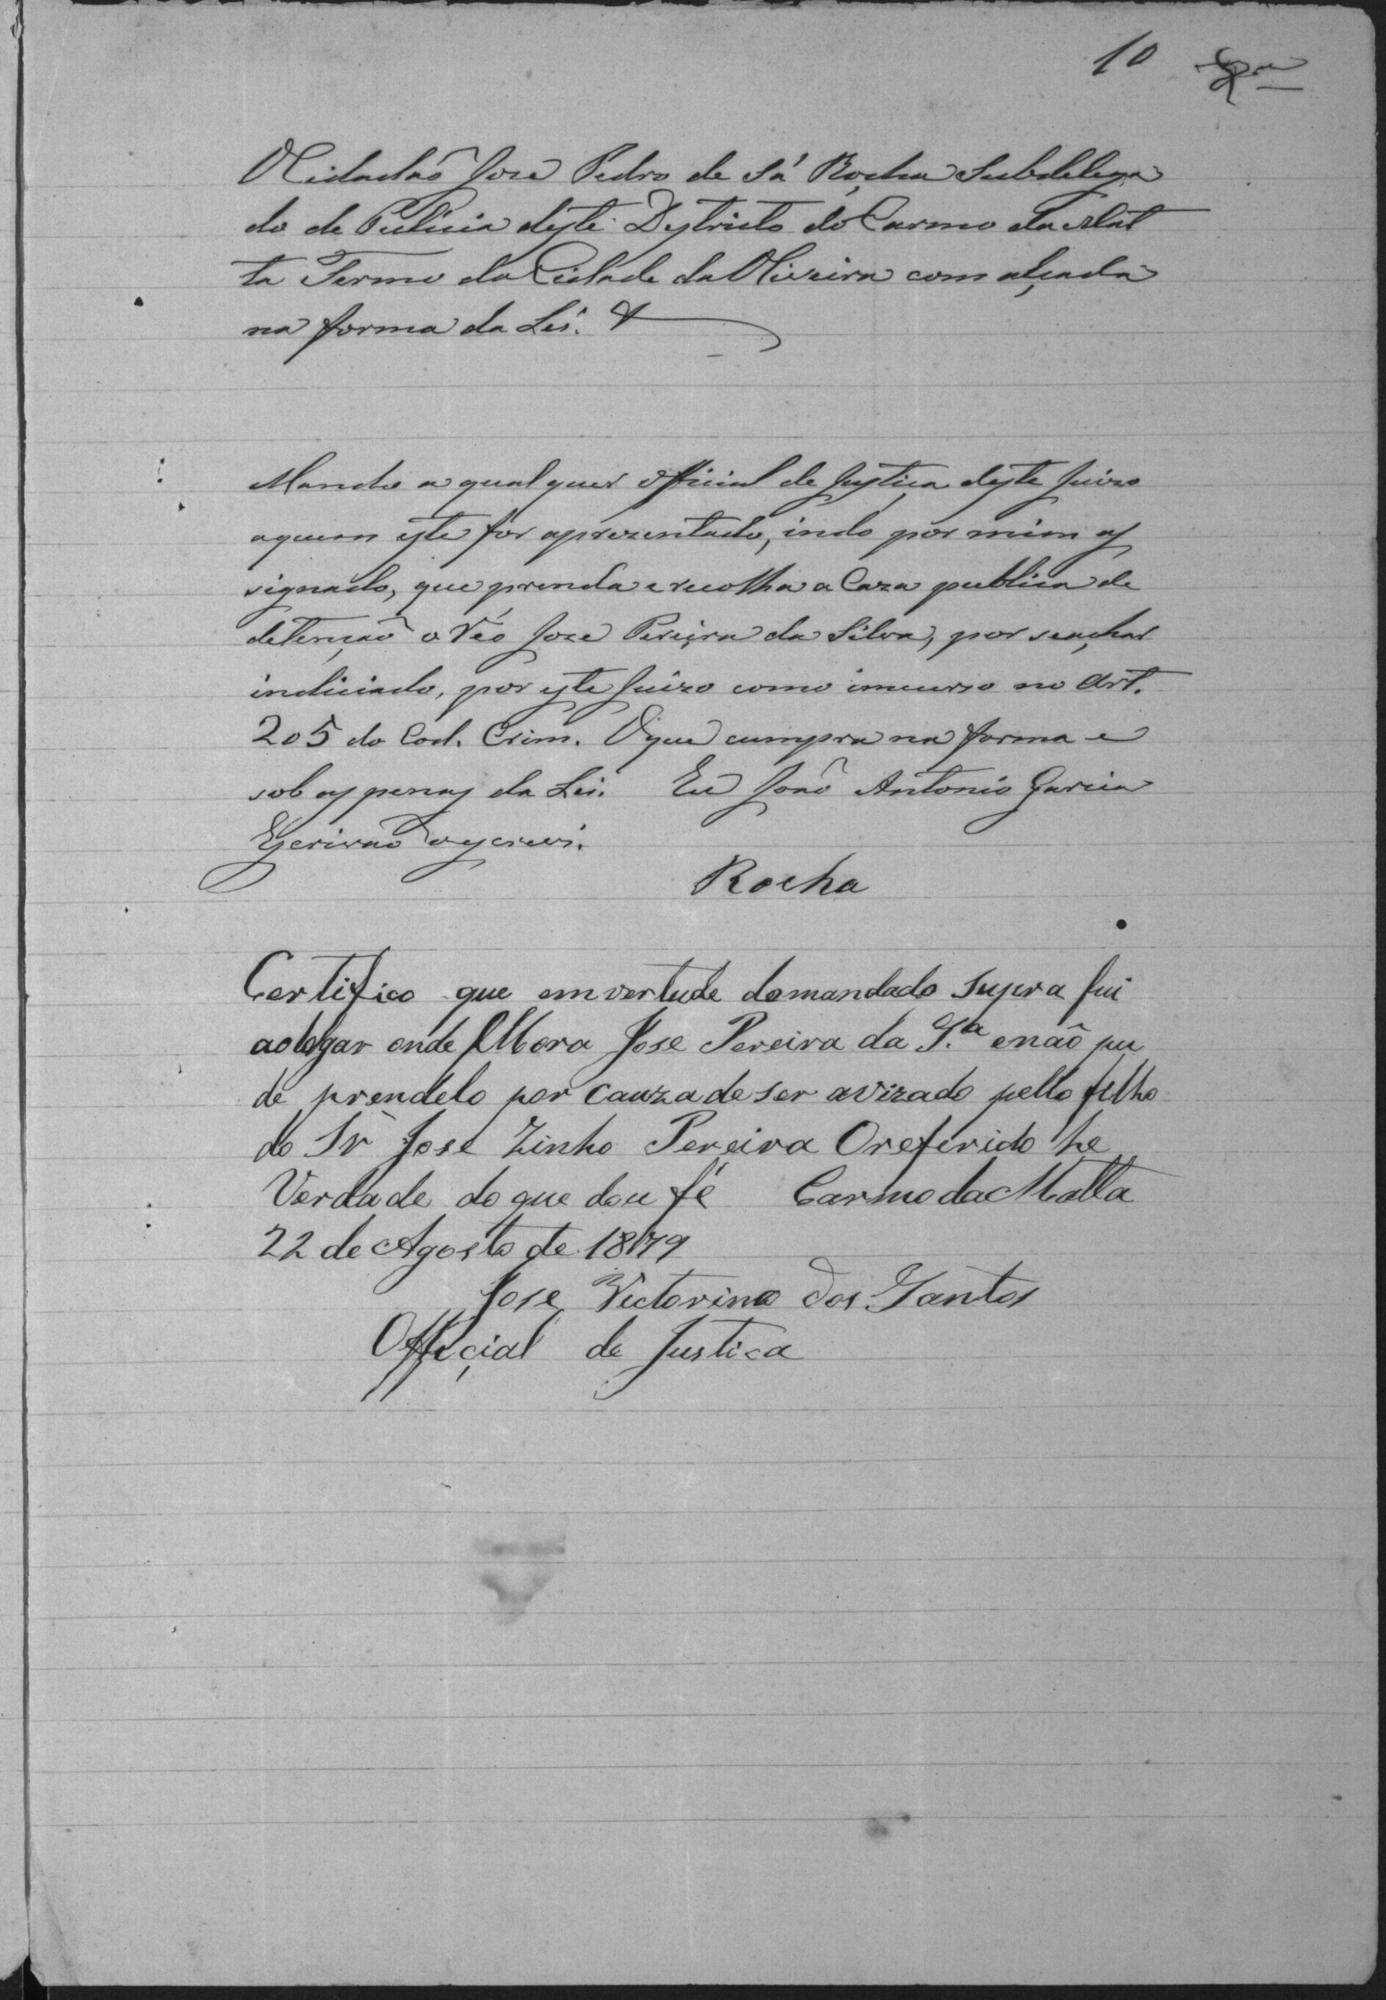 10
O Cidadaõ Joze Pedro de Sá Rocha Subdelega
do de Pulicia deste Destricto do Carmo da Mat
ta Termo da Cidade da Oliveira com alçada
na forma da Lei. &
Mando a qualquer Official de Justiça deste Juizo
aquem este for aprezentado, indo por mim as
signado, que prenda e recolha a Caza publica de
detençaõ o Réo Joze Pereira da Silva, por seachar
indiciado, por este Juizo como incurso no Art.
205 do Cod. Crim. Oque cumpra na forma e
sob as penas da Lei. Eu Joaõ Antonio Garcia
Escrivaõ o escrevi.
Rocha
Certifico que emvertude domandado supra fui
aologar onde Mora Jose Pereira da S.ª enaõ pu
de prendelo por cauza de ser avizado pello filho
do Sr Jose Zinho Pereira Oreferido he
Verdade do que dou fé Carmo da Matta
22 de Agosto de 1879
Jose Victorino dos Santos
Official de Justica